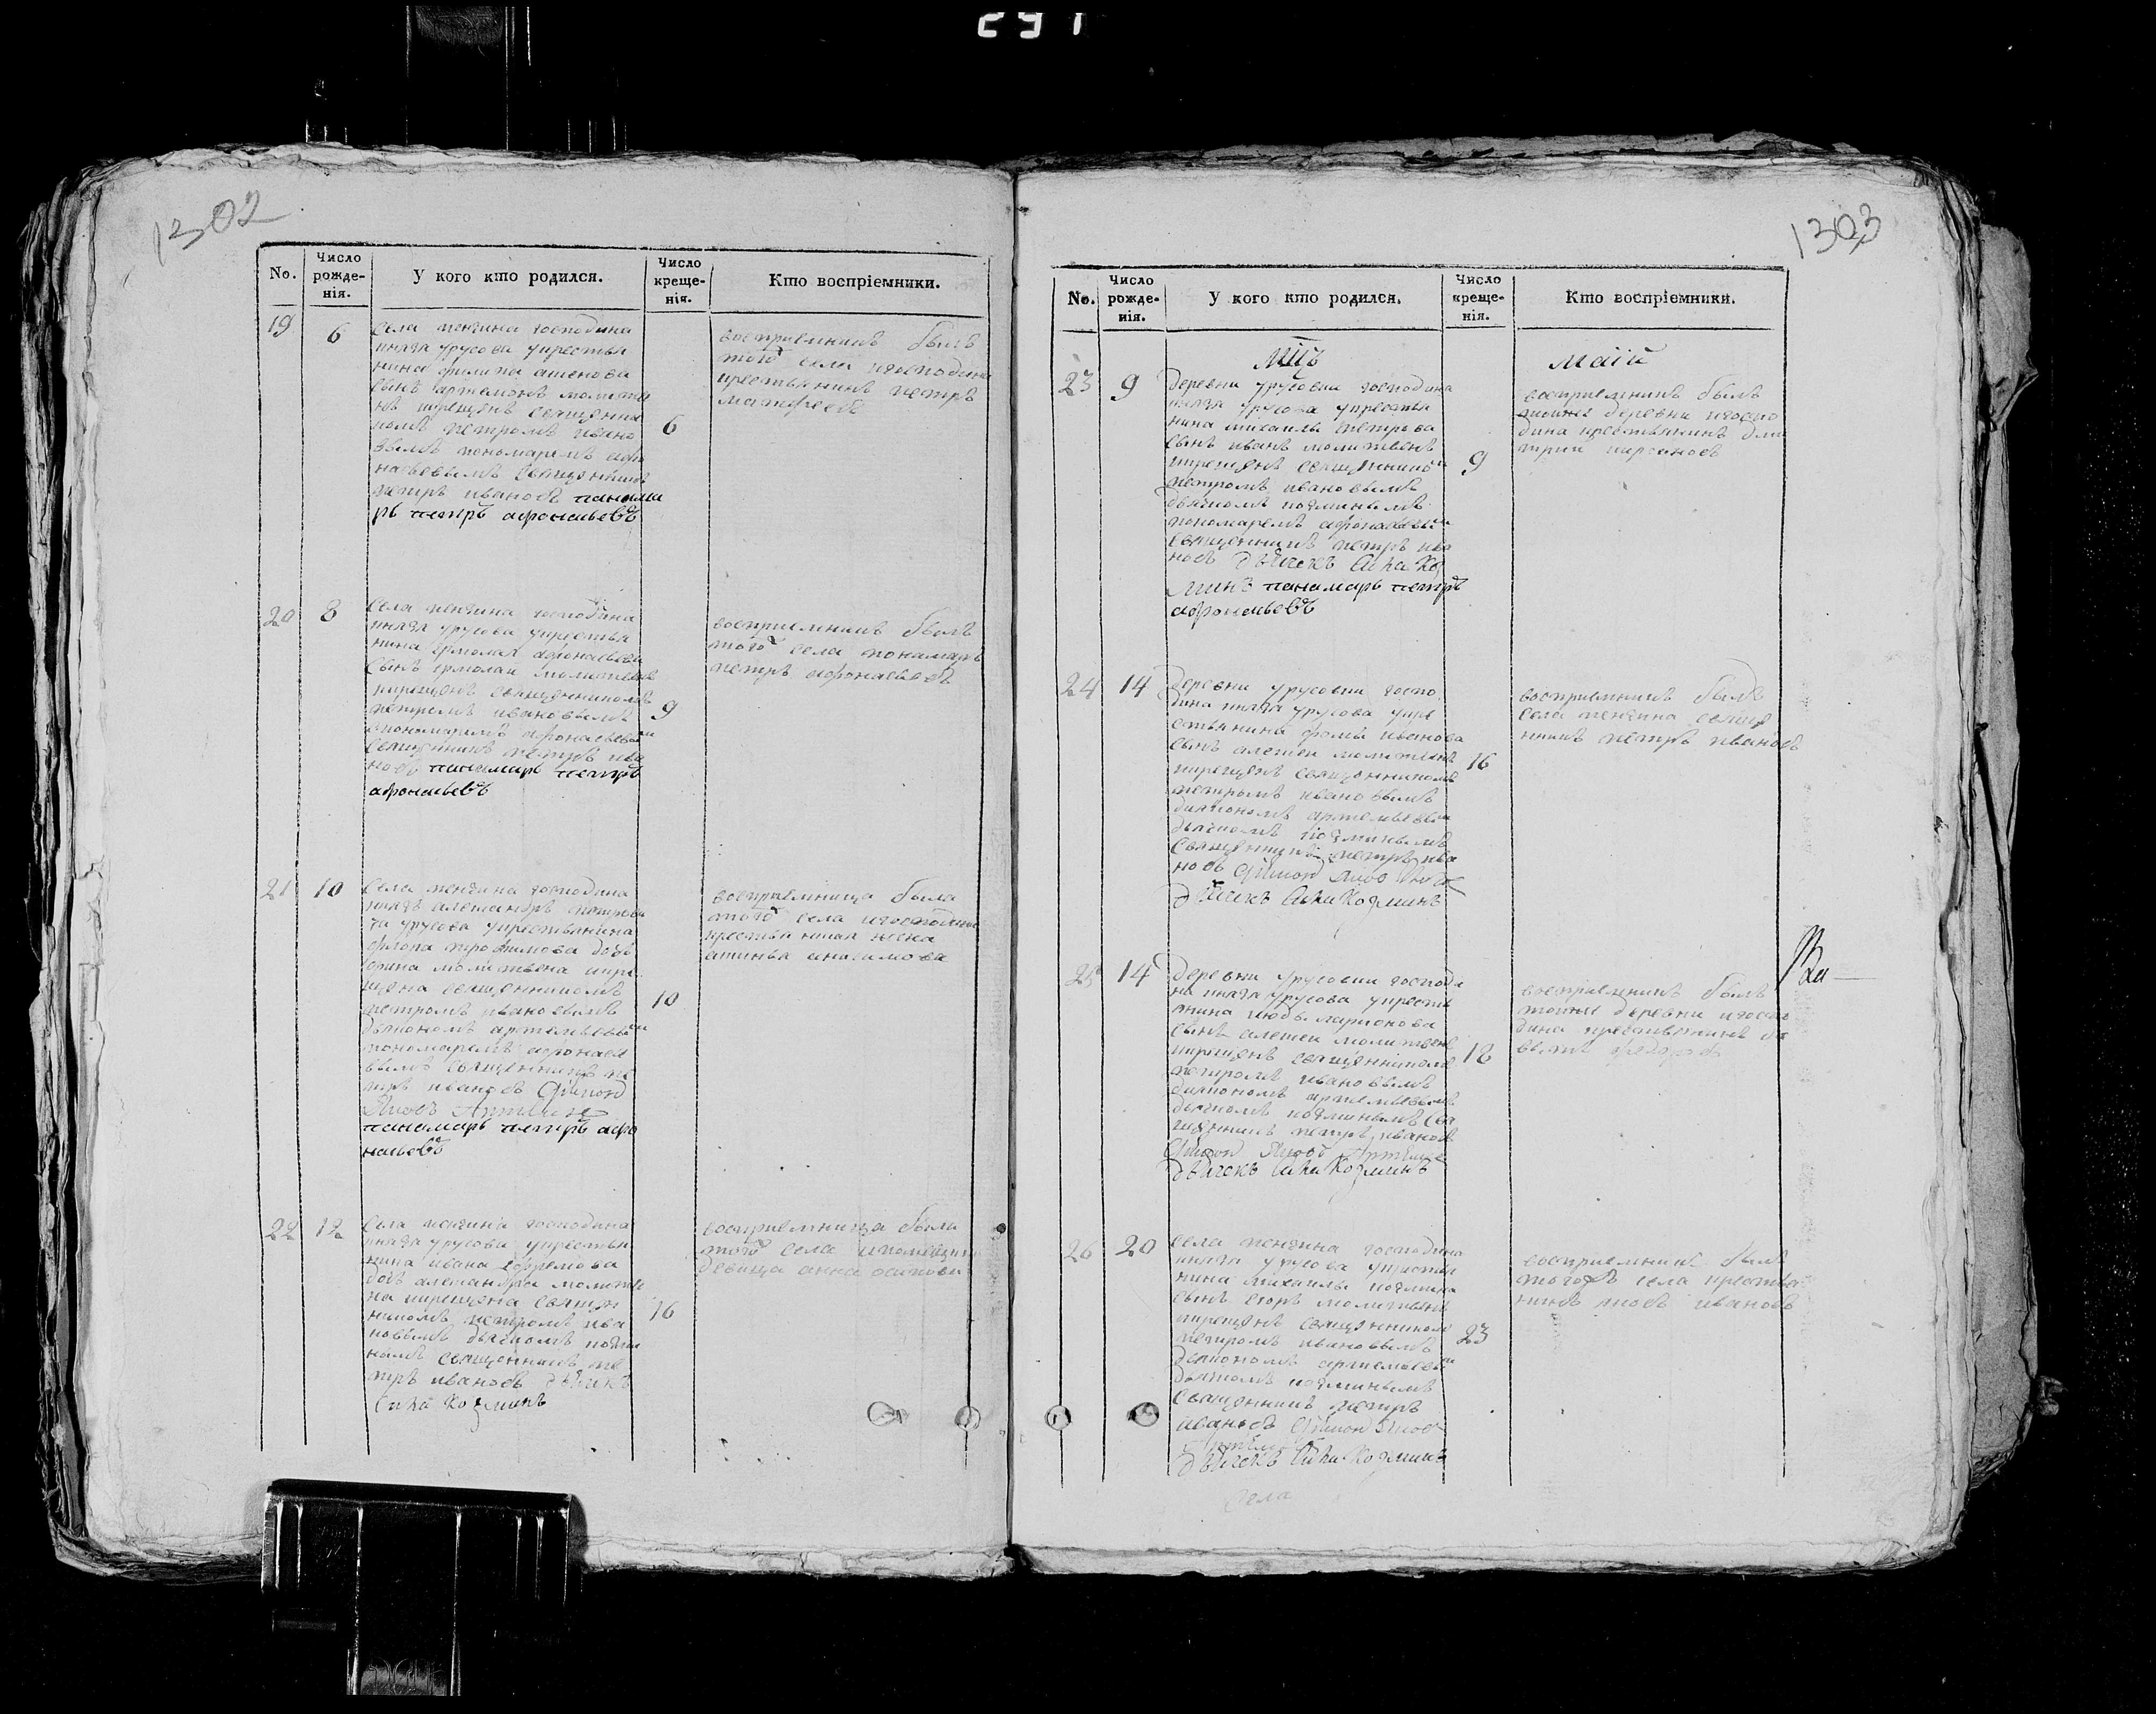 291
1302
No.
Число рожде-нія.
У кого кто родился.
Число креще-нія.
Кто воспріемники.
19
6
села пенчина господина
князя урусова у крестья
нина филипа
сынъ артемонъ молитве
нъ икрещенъ священни
комъ петромъ ивано
вымъ пономаремъ афо
насьевымъ священникъ
петръ ивановъ панама
рь петръ афонасьевъ
6
восприемникъ былъ
того села игосподина
крестьянинъ петръ
матфеевъ
20
8
села пенчина господина
князя урусова укрестья
нина ермолая афонасьева
сынъ ермолаи молитвенъ
икрещенъ священникомъ
петромъ ивановымъ
пономаремъ афонасьевым
священникъ петръ ива
новъ панамарь петръ
афонасьевъ
9
восприемникъ былъ
того села пономарь
петръ афонасьевъ
21
10
села пенчина господина
князь александръ петрови
ча урусова укрестьянина
фрола трофимова дочь
ирина молитвена икре
щена священникомъ
петромъ ивановымъ
дьякономъ артемьевым
пономаремъ афонасье
вымъ священникъ пе
тръ ивановъ
панамарь петръ афо
насьевъ
10
восприемница была
того села игосподина
крестьянина жена
аксинья анисимова
22
12
села пенчина господина
князя урусова укрестья
нина ивана ефремова
дочь александра молитве
на икрещена священ
никомъ петромъ ива
новымъ дьячкомъ козми
нымъ священникъ пе
тръ ивановъ дьячекъ
Козминъ
16
восприемница была
того села
девица анна осипова
1303
No.
Число рожде-нія.
У кого кто родился.
Число креще-нія.
Кто воспріемники.
мцъ маій
23
9
деревни урусовки господина
князя урусова укрестья
нина михаилы петрова
сынъ иванъ молитвенъ
икрещенъ священником
петромъ ивановымъ
дьячкомъ козминымъ
пономаремъ афонасьевым
священникъ петръ ива
новъ дьячекъ Ко
зминъ панамарь петръ
афонасьевъ
9
восприемникъ былъ
тоиже деревни игоспо
дина крестьянинъ дми
трий
24
14
деревни урусовки госпо
дина князя урусова укре
стьянина фомы иванова
сынъ алексеи молитвенъ
икрещенъ священникомъ
петромъ ивановымъ
дьякономъ артемьевым
дьячкомъ козминымъ
священникъ петръ ива
новъ
дьячекъ Козминъ
16
восприемникъ былъ
села пенчина священ
никъ петръ ивановъ
25
14
деревни урусовки господи
на князя урусова укрестья
янина
сынъ алексеи молитвенъ
икрещенъ священникомъ
петромъ ивановымъ
дьякономъ артемьевымъ
дьячкомъ козминымъ свя
щенникъ петръ ивановъ
дьячекъ Козминъ
18
восприемникъ былъ
тоиже деревни игоспо
дина крестьянинъ
26
20
села пенчина господина
князя урусова укрестья
нина михаилы козмина
сынъ егоръ молитвенъ
икрещенъ священникомъ
петромъ ивановымъ
дьякономъ артемьевым
дьячкомъ козминымъ
священникъ петръ
ивановъ
дьячекъ Козминъ
23
восприемникъ былъ
тогожъ села крестья
нинъ яковъ ивановъ
села